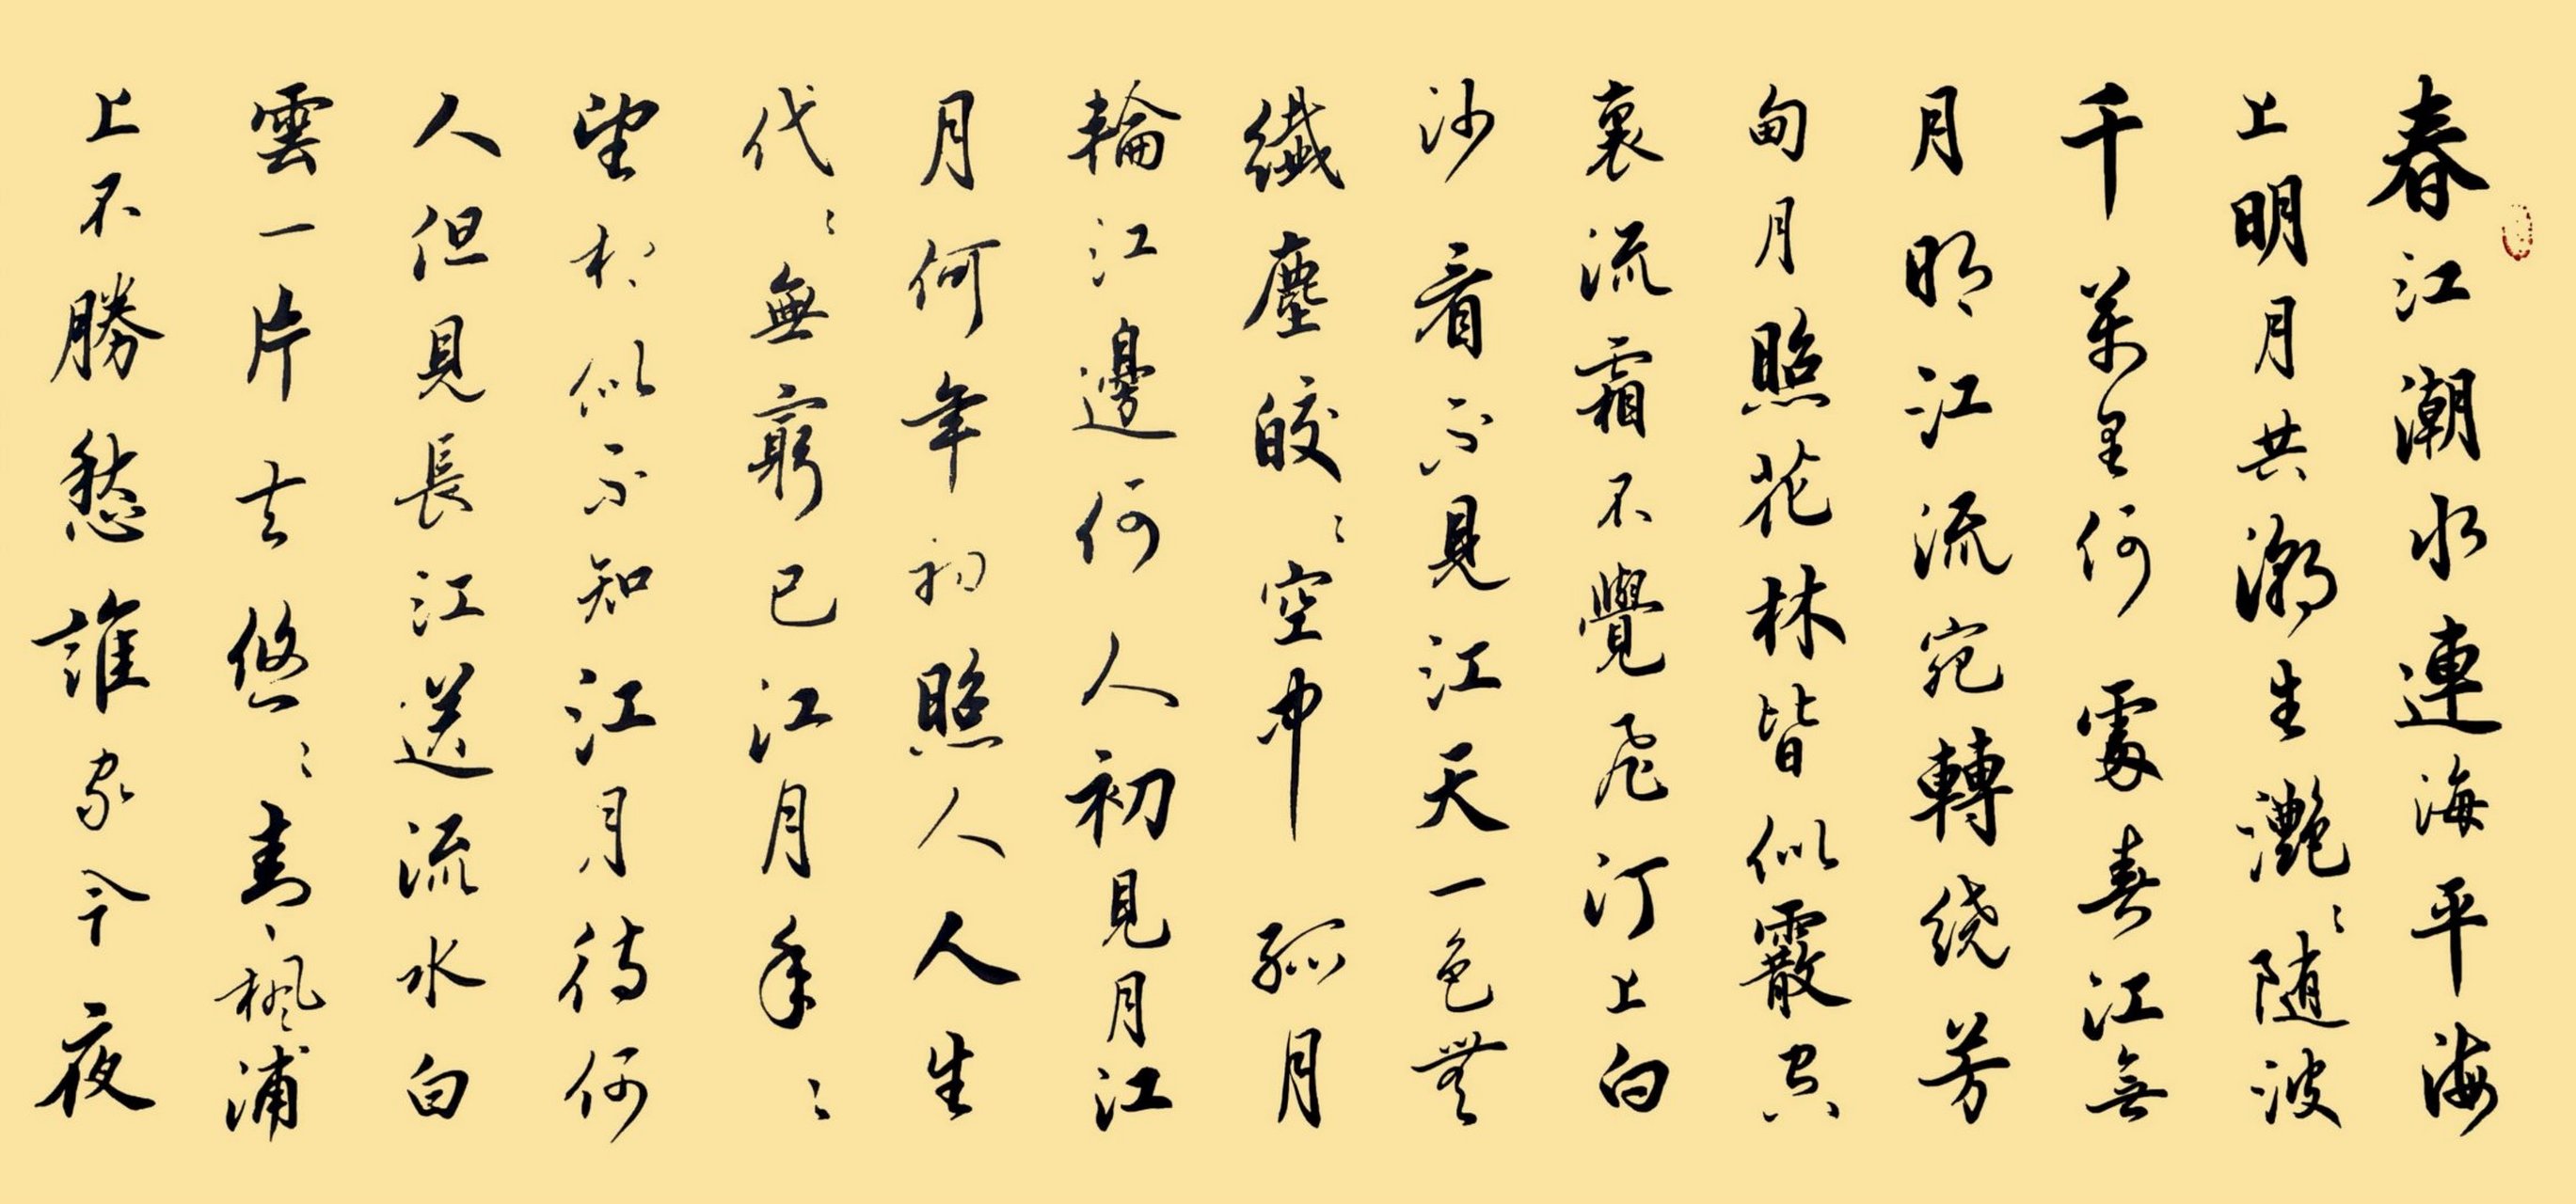 春江潮水連海平海
上明月共潮生灩〻随波
千萬里何處春江無
月明江流宛轉绕芳
甸月照花林皆似霰空
裏流霜不覺飛汀上白
沙看不見江天一色無
纖塵皎〻空中孤月
輪江邊何人初見月江
月何年初照人人生
代〻無窮已江月年〻
望相似不知江月待何
人但見長江送流水白
雲一片去悠〻青楓浦
上不勝愁誰家今夜